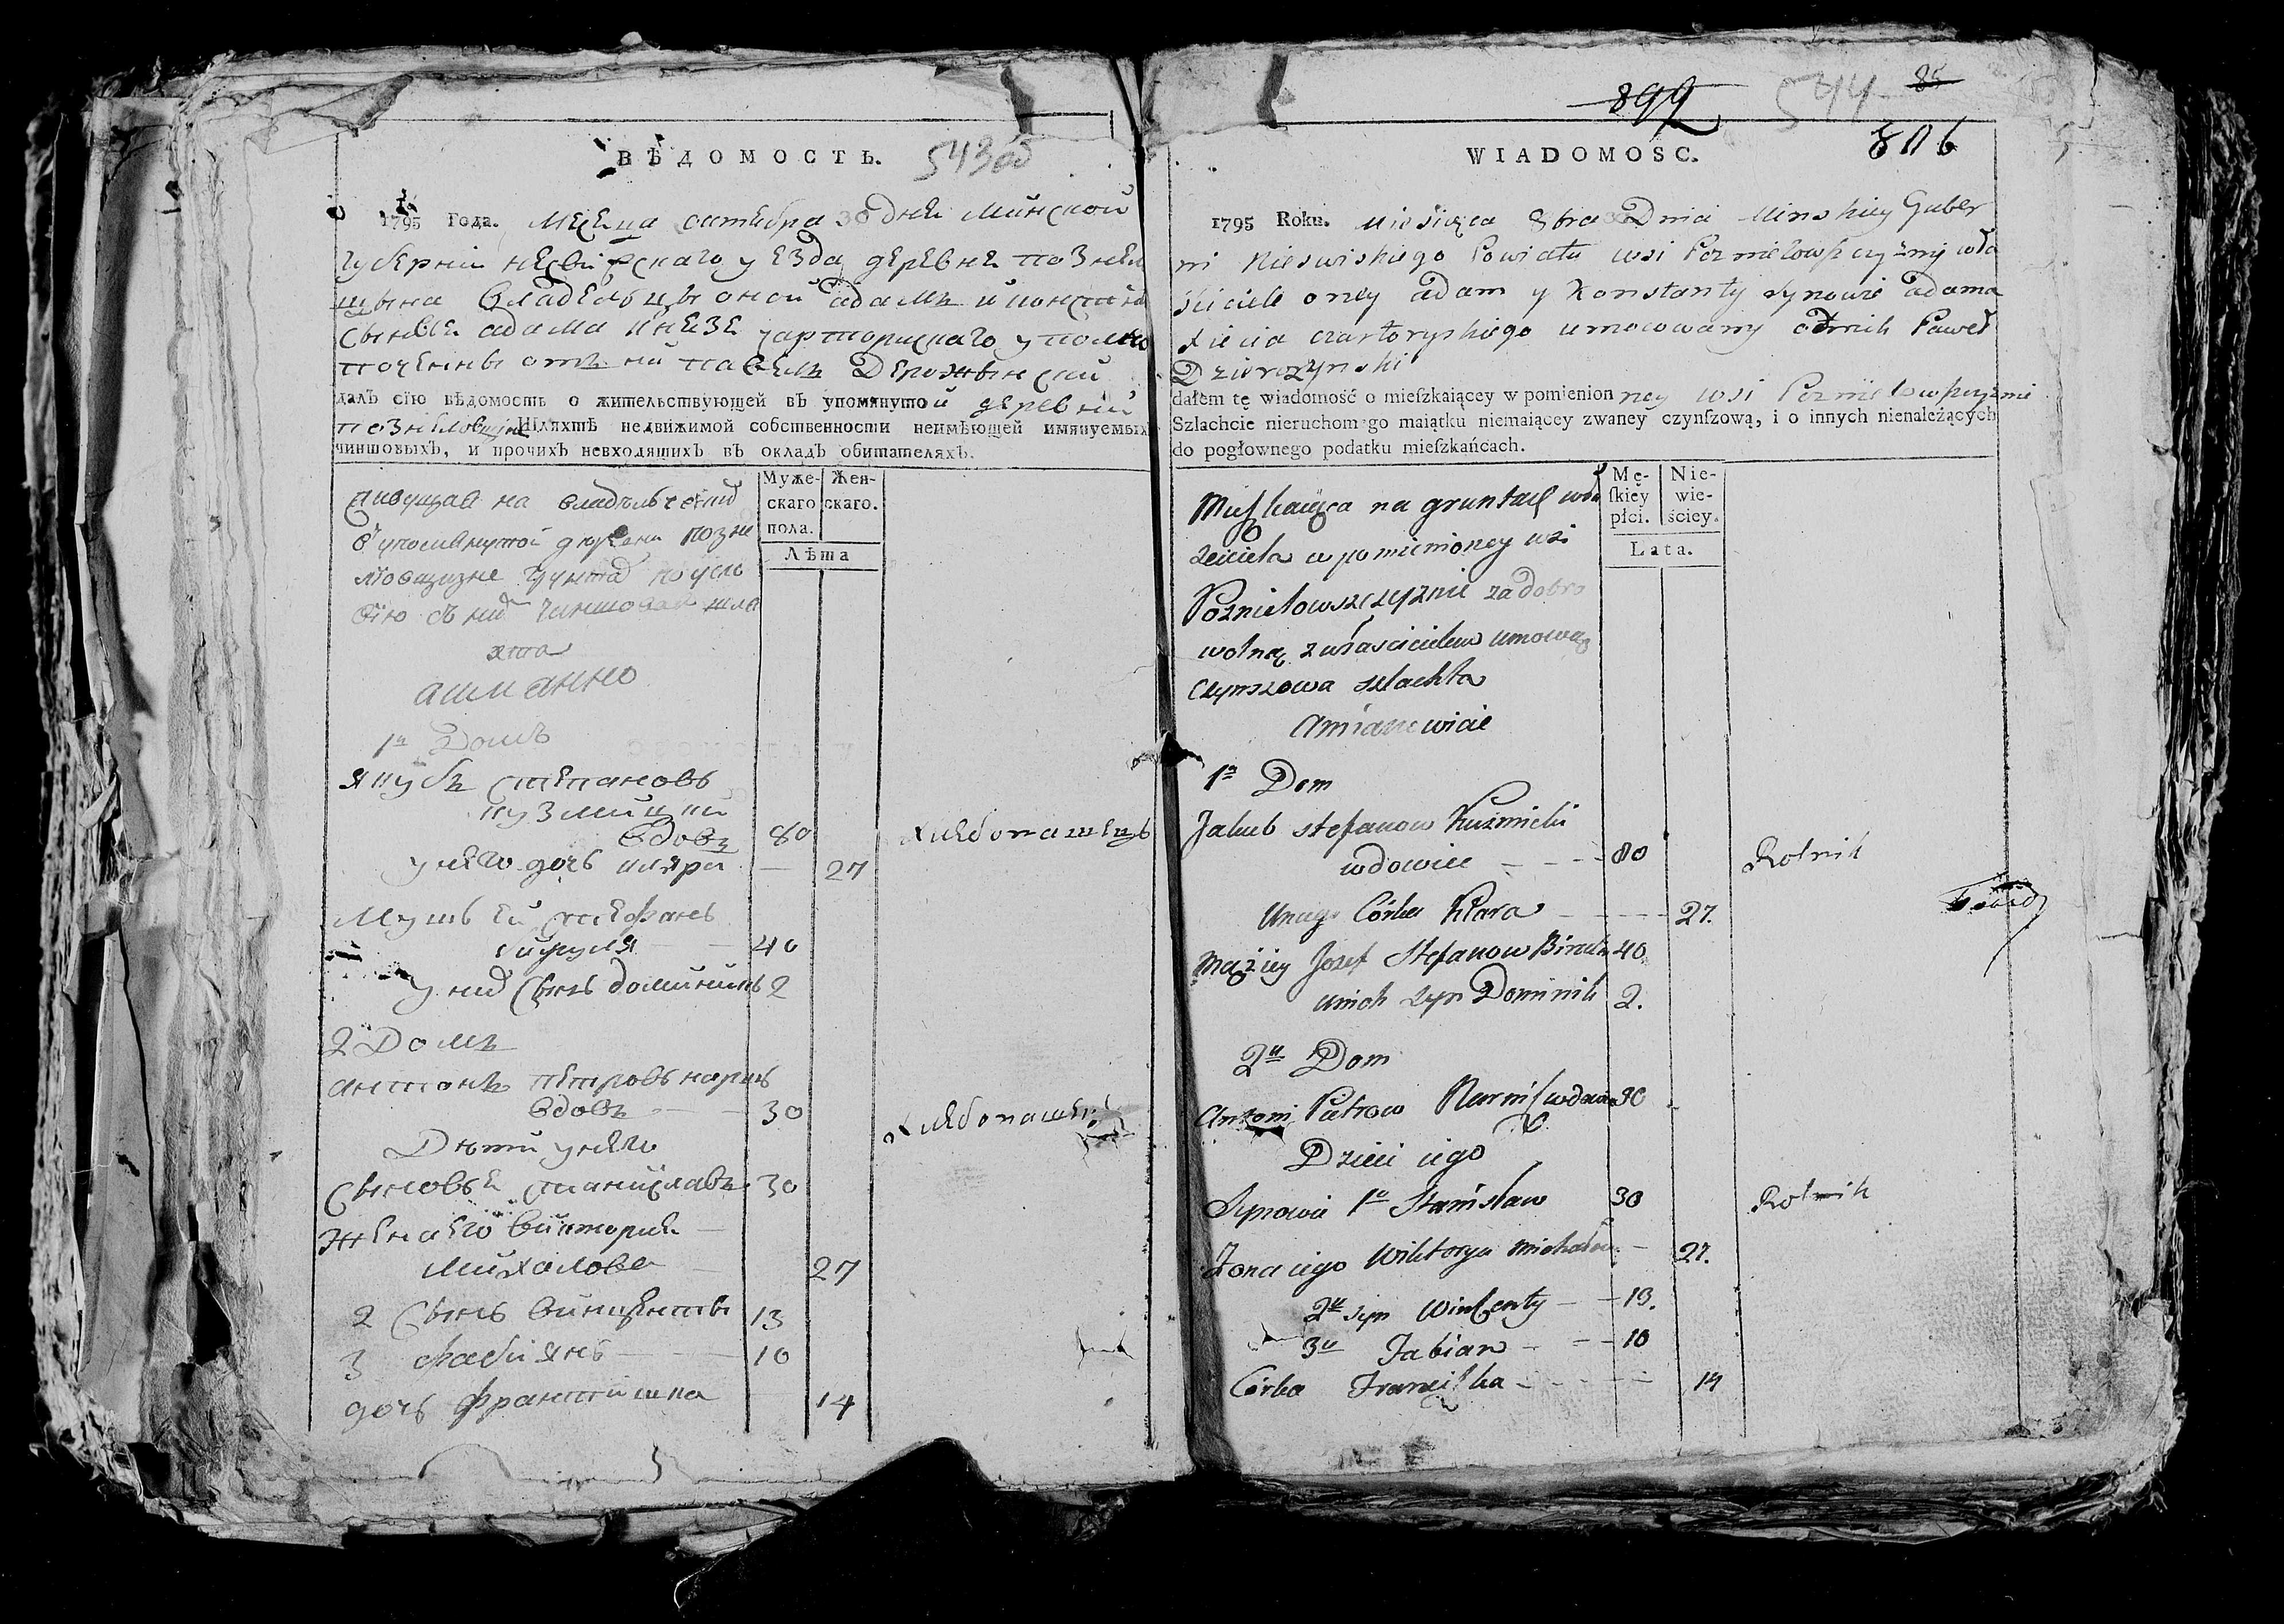 ВѢДОМОСТЬ. 543об
1795 Года. Месеца октебра 30 дня Минской
губернии несвижскаго уезда деревне познел
щызна владельцы оной адамъ и констан
сынове адама кнезе чарторискаго уполно
моченны отъ них павелъ Держынский
далъ сїю вѣдомость о жительствующей въ упомянутой деревни
познеловщизне Шляхтѣ недвижимой собственности неимѣющей имянуемыхъ
чиншовыхъ, и прочихъ невходящихъ въ окладъ обитателяхъ.
Муже- Жен-
скаго скаго.
пола.
Лѣта
живущая на владѣльче
в упомянутой деревни позне
ловщизне грунта по усло
вїю съ ни чиншовая шля
хта
1й Домъ
якубъ степановъ
кузмицки
вдовъ 80 хлебопашецъ
у него дочь кляра — 27
Мужъ ей стефанъ
40
у них сынъ доминикъ 2
2 Домъ
антонъ петровъ
вдовъ 30 хлебопашецъ
Дети у него
Сыновья станиславъ 30
жена его виктория
михалова 27
2 сынъ винценты 13
3 фабиянъ 10
дочь франтишка 14
899 544 85
WIADOMOSC. 806
1795 Roku. Miesiąca 8bra 30 Dnia Minskiey Guber
ni Nieswiskiego Powiatu wsi Poznielowszczyzny wła
sciciele oney Adam y Konstanty synowie Adama
Xiecia Czartoryskiego umocowany od nich Paweł
Dzierzynski
dałem tę wiadomość o mieſzkaiącey w pomienionney wsi Poznielowszczyznie
Szlachcie nieruchomego maiątku niemaiącey zwaney czynſzową, i o innych nienależących
do pogłownego podatku mieſzkańcach.
Mę- Nie-
ſkiey wie-
płci. ściey.
Lata.
Mieszkaiąca na gruntach wła
sciciela w pomienioney wsi
Poznielowszczyznie za dobro
wolną z włascicielem umową
Czynszowa szlachta
1n Dom
Jakub Stefanow Kuzmicki
wdowiec 80 Rolnik
Uniego Córka Klara 27.
Mąż iey Jozef Stefanow 40
Unich syn Dominik 2.
2u Dom
Antoni Petrow wdowiec 30
Dzieci iego
Synowie 1u Stanisław 30 Rolnik
Żona iego Wiktorya Michałowa 27.
2u syn Wincenty 13.
3u Fabian 10
Córka Franciszka 14